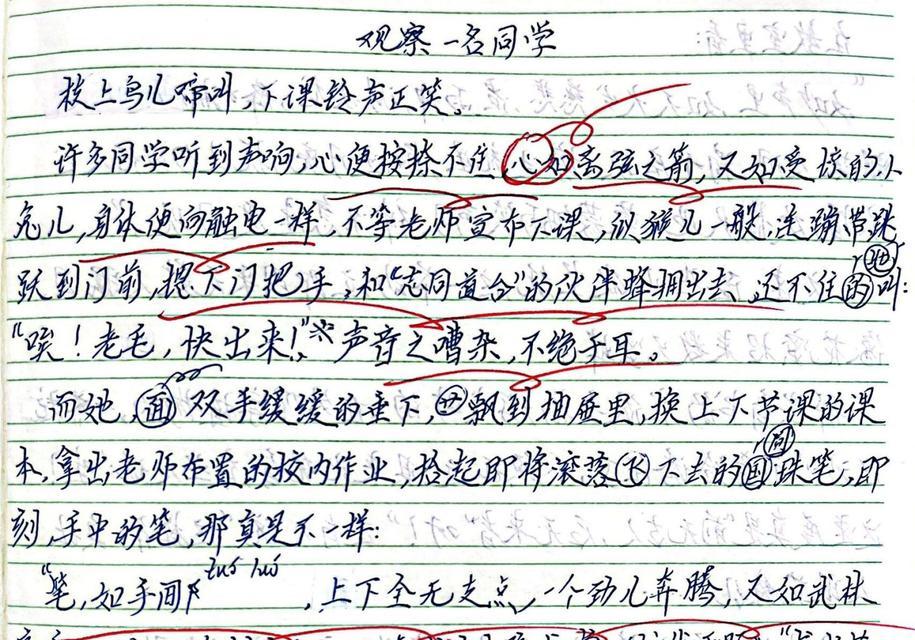 观察一名同学
枝上鸟儿啼叫,下课铃声正笑。
许多同学听到声响,心便按捺不住,心如离弦之箭,又如受惊的小
兔儿,身体便向触电一样,不等老师宣布下课,似猴儿一般,连蹦带跳
地
跃到门前,摁下门把手,和“志同道合”的伙伴蜂拥出去,还不住的叫:
“唉!老毛,快出来!”※声音之嘈杂,不绝于耳。
而她,面双手缓缓的垂下,飘到抽屉里,换上下节课的课
圆
本,拿出老师布置的校内作业,拾起即将滚落下下去的圆珠笔,即
刻,手中的笔,那真是不一样:
zuó luó
“笔,如手间,上下全无支点,一个劲儿奔腾,又如武林